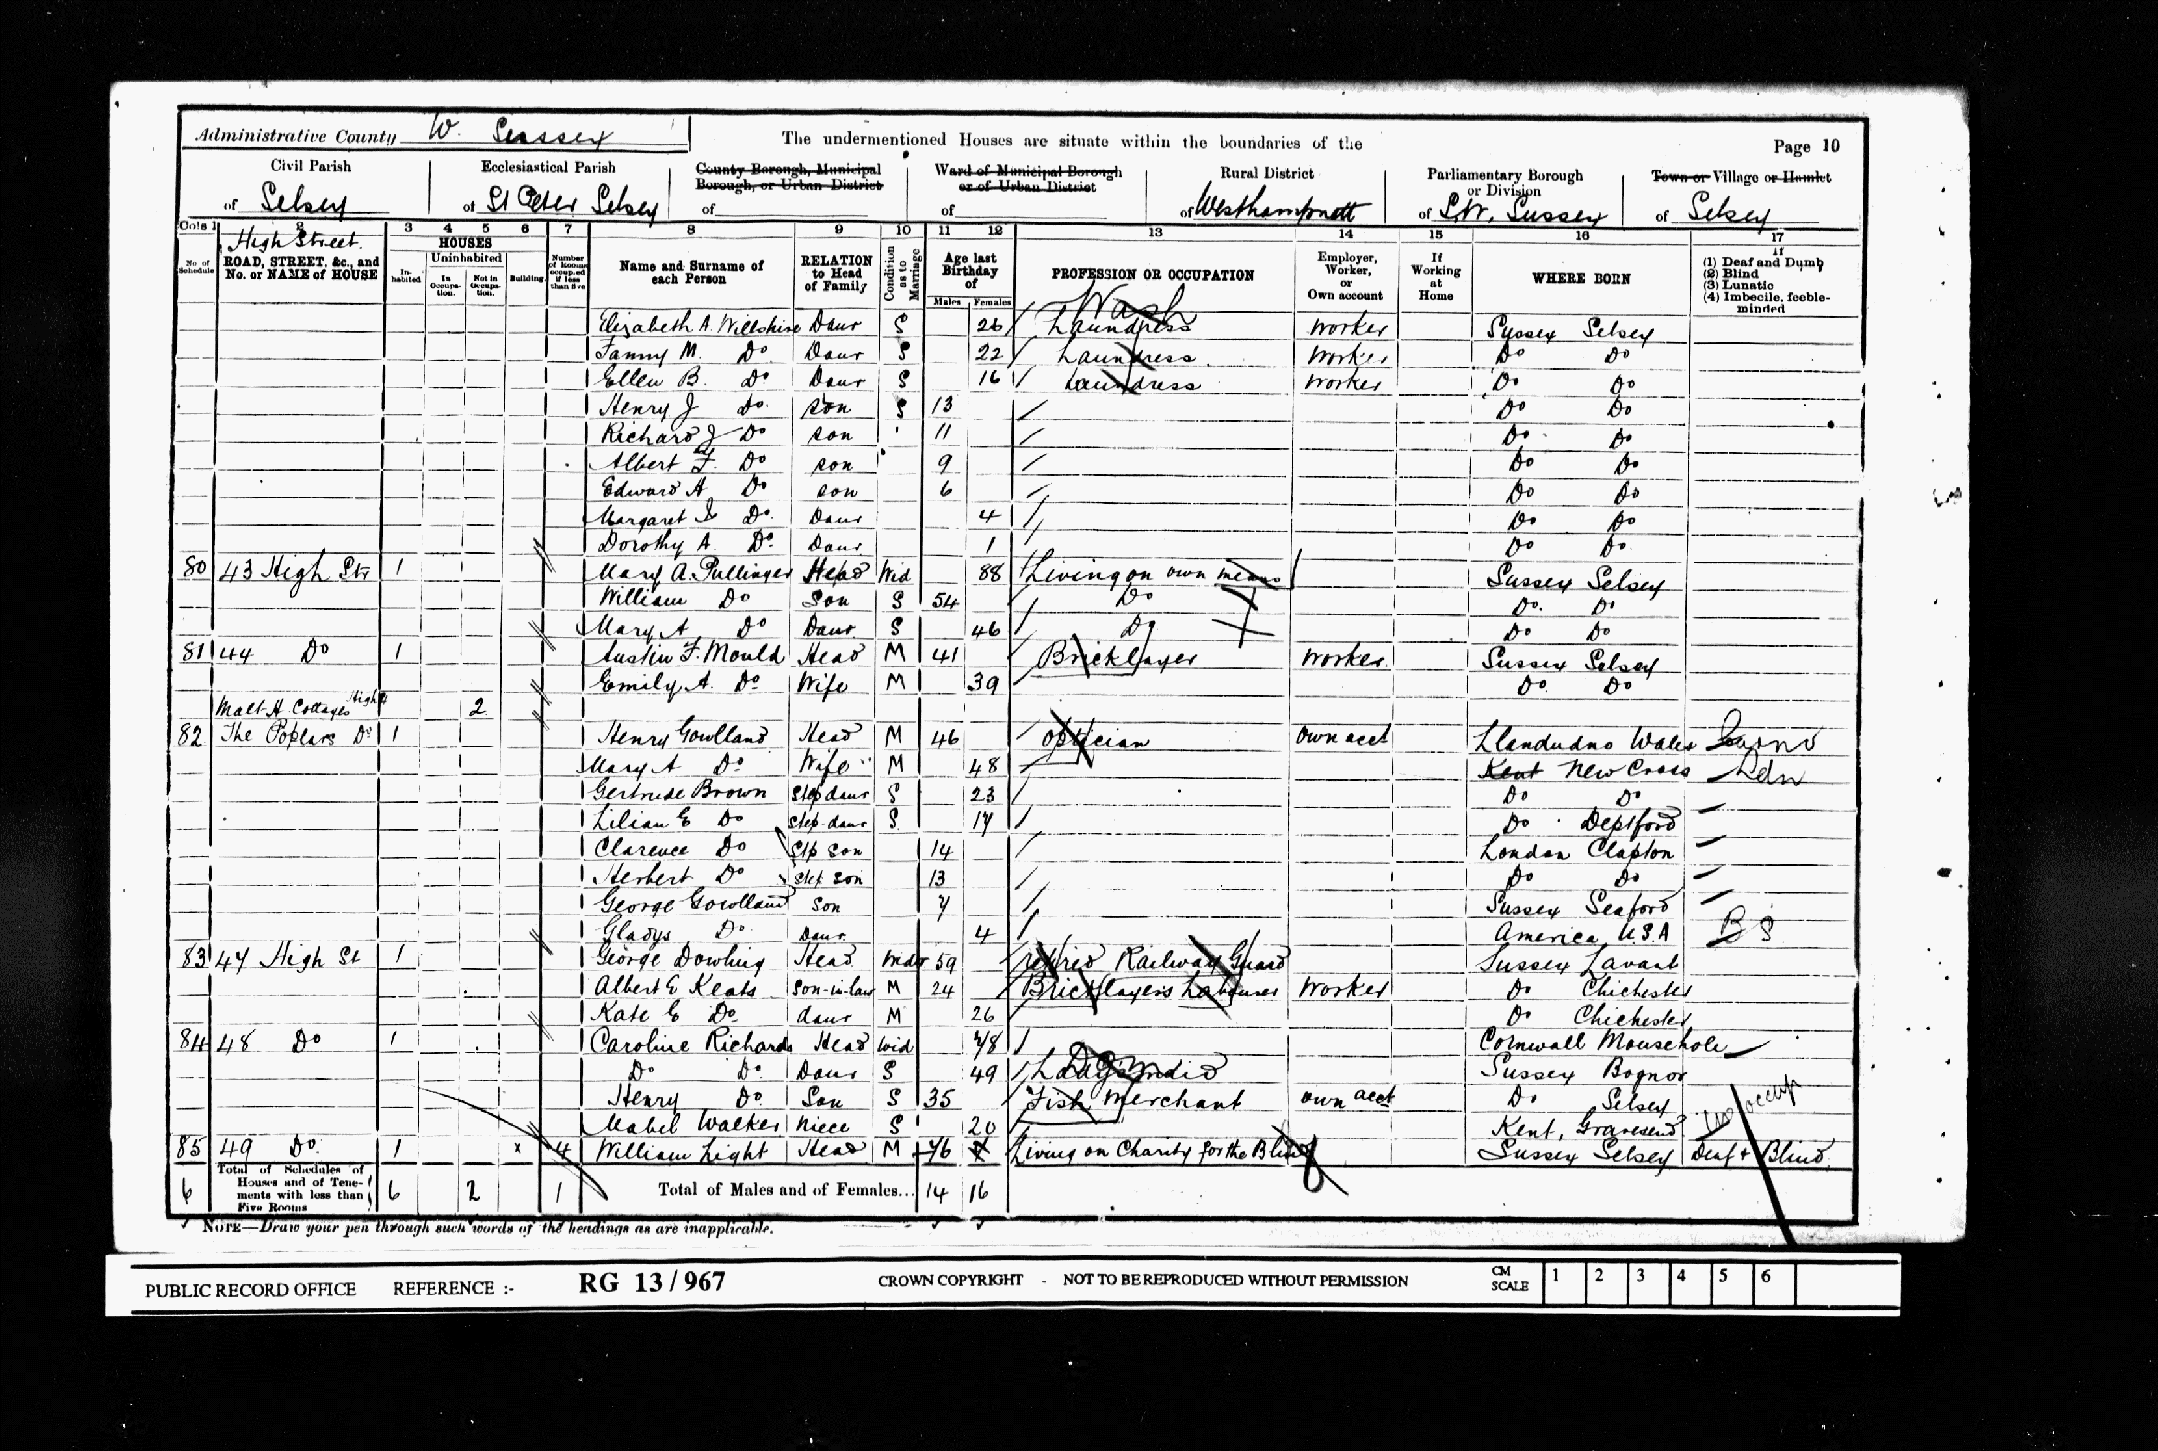 Administrative County W. Sussex The undermentioned Houses are situate within the boundaries of the Page 10
Civil Parish Ecclesiastical Parish County Borough, Municipal Borough, or Urban District Ward of Municipal Borough or of Urban District Rural District Parliamentary Borough or Division Town or Village or Hamlet
of Selsey of St Peter Selsey of of of Westhampnett of S.W. Sussex of Selsey
Cols 1 2 3 4 5 6 7 8 9 10 11 12 13 14 15 16 17
No. of Schedule High Street. ROAD, STREET, &c., and No. or NAME of HOUSE HOUSES In-habited Uninhabited In Occupa-tion. Not in Occupa-tion. Building Number of Rooms occupied if less than five Name and Surname of each Person RELATION to Head of Family Condition as to Marriage Age last Birthday of Males Females PROFESSION OR OCCUPATION Employer, Worker, or Own account If Working at Home WHERE BORN If (1) Deaf and Dumb (2) Blind (3) Lunatic (4) Imbecile, feeble-minded
Wash
Elizabeth A. Willshire Daur S 26 Laundress Worker Sussex Selsey
Fanny M. Do Daur S 22 Laundress Worker Do Do
Ellen B. Do Daur S 16 Laundress Worker Do Do
Henry J Do. Son S 13 Do Do
Richard J Do son 11 Do Do
Albert F. Do son 9 Do Do
Edward A Do son 6 Do Do
Margaret Do. Daur 4 Do Do
Dorothy A. Do. Daur 1 Do Do
80 43 High Str 1 Mary A. Pullinger Head Wid 88 Living on own means Sussex Selsey
William Do Son S 54 Do Do. Do
Mary A Do Daur S 46 Do Do Do
81 44 Do 1 Austin F. Mould Head M 41 Bricklayer Worker Sussex Selsey
Emily A. Do Wife M 39 Do Do
Malt H. Cottages High St 2
82 The Poplars Do 1 Henry Gowlland Head M 46 Optician own acct Llandudno Wales
Mary A Do Wife M 48 Kent New Cross Ldn
Gertrude Brown Step daur S 23 Do Do
Lilian E Do Step-daur S 17 Do Deptford
Clarence Do Stp Son 14 London Clapton
Herbert Do Step Son 13 Do Do
George Gowlland Son 7 Sussex Seaford
Gladys Do Daur 4 America, U.S.A B S
83 47 High St 1 George Dowling Head Wdr 59 retired Railway Guard Sussex Lavant
Albert E Keats Son-in-law M 24 Bricklayers Labourer Worker Do Chichester
Kate E Do. daur M 26 Do Chichester
84 48 Do 1 Caroline Richards Head Wid 78 Cornwall Mousehole
Do Do. Daur S 49 Sussex Bognor
Henry Do. Son S 35 Fish Merchant own acct Do Selsey
Mabel Walker Niece S 20 Kent, Gravesend no occup
85 49 Do. 1 x 4 William Light Head M 76 Living on Charity for the Blind Sussex Selsey Deaf + Blind.
6 Total of Schedules of Houses and of Tene-ments with less than Five Rooms 6 2 1 Total of Males and of Females... 14 16
NOTE—Draw your pen through such words of the headings as are inapplicable.
PUBLIC RECORD OFFICE REFERENCE :- RG 13/967 CROWN COPYRIGHT - NOT TO BE REPRODUCED WITHOUT PERMISSION CM SCALE 1 2 3 4 5 6